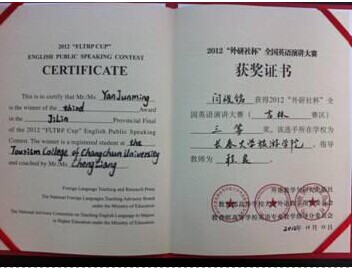 2012 "FLTRP CUP"
ENGLISH PUBLIC SPEAKING CONTEST
CERTIFICATE
This is to certify that Mr./Ms. YanJunming
is the winner of the third Award
in the JiLin Provincial Final
of the 2012 "FLTRP Cup" English Public Speaking
Contest. The winner is a registered student at the
Tourism College of Changchun University
and coached by Mr./Ms. ChengLiang.
Foreign Language Teaching and Research Press
The National Foreign Language Teaching Advisory Board
under the Ministry of Education
The National Advisory Committee on Teaching English to Majors
in Higher Education under the Ministry of Education
2012 "外研社杯" 全国英语演讲大赛
获奖证书
闫峻铭 获得2012 "外研社杯" 全
国英语演讲大赛( 吉林 )
三 等 奖。该选手所在学校为
长春大学旅游学院, 指导
教师为 程良。
外语教学与研究出版社
教育部高等学校大学外语教学指导委员会
教育部高等学校英语专业教学指导分委员会
2012年11月11日